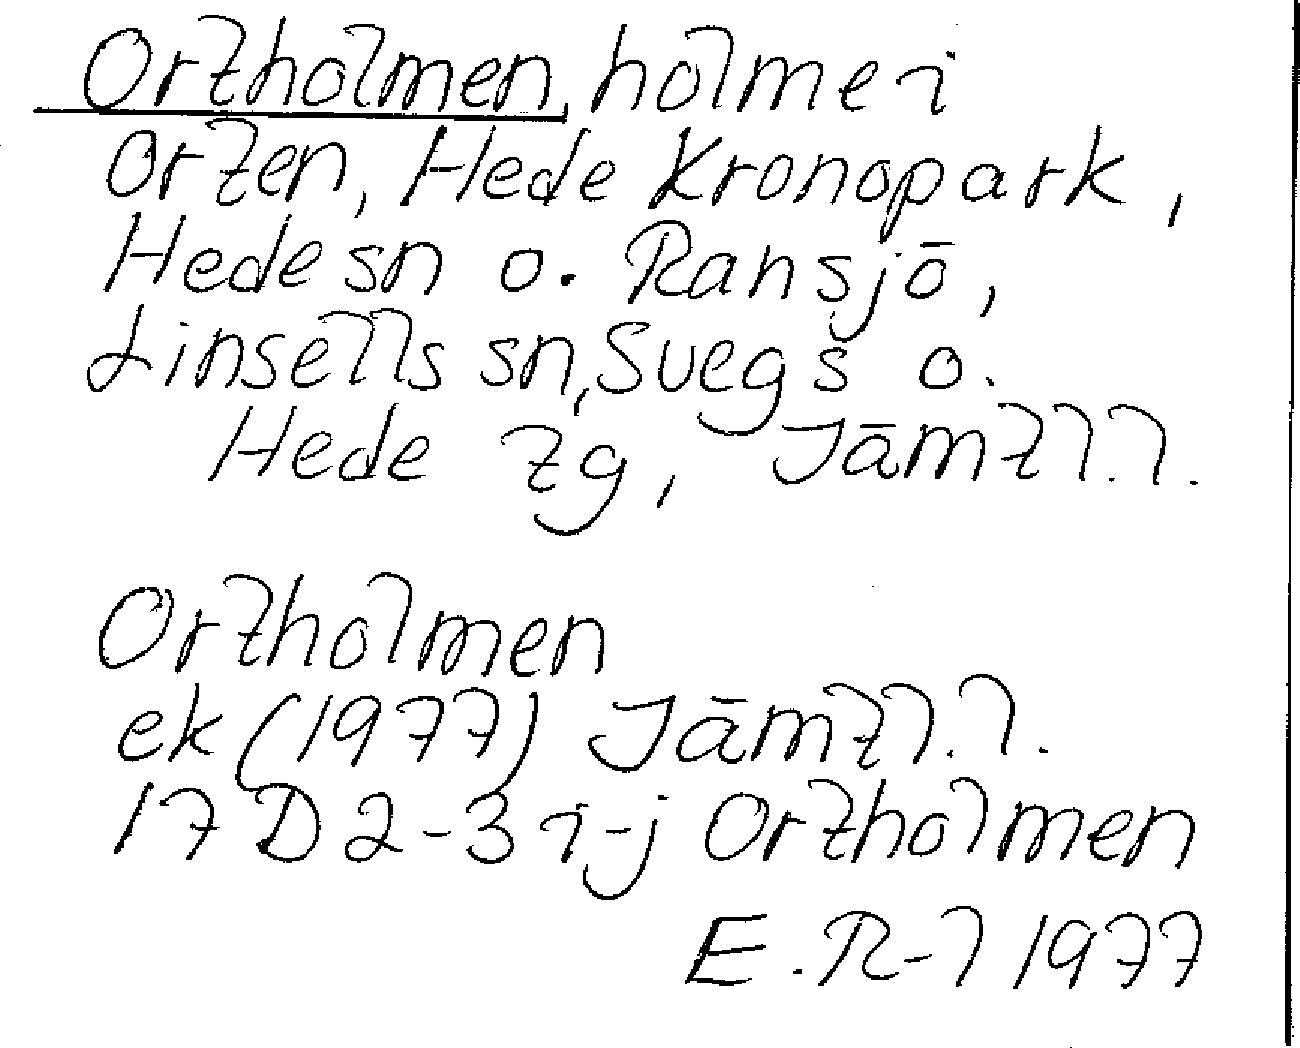 Ortholmen, holme i
Orten, Hede Kronopark,
Hede sn o. Ransjö,
Linsells sn, Svegs o.
Hede tg, Jämtl.l.
Ortholmen
ek (1977) Jämtl.l.
17 D 2-3 i-j Ortholmen
E.R-l 1977